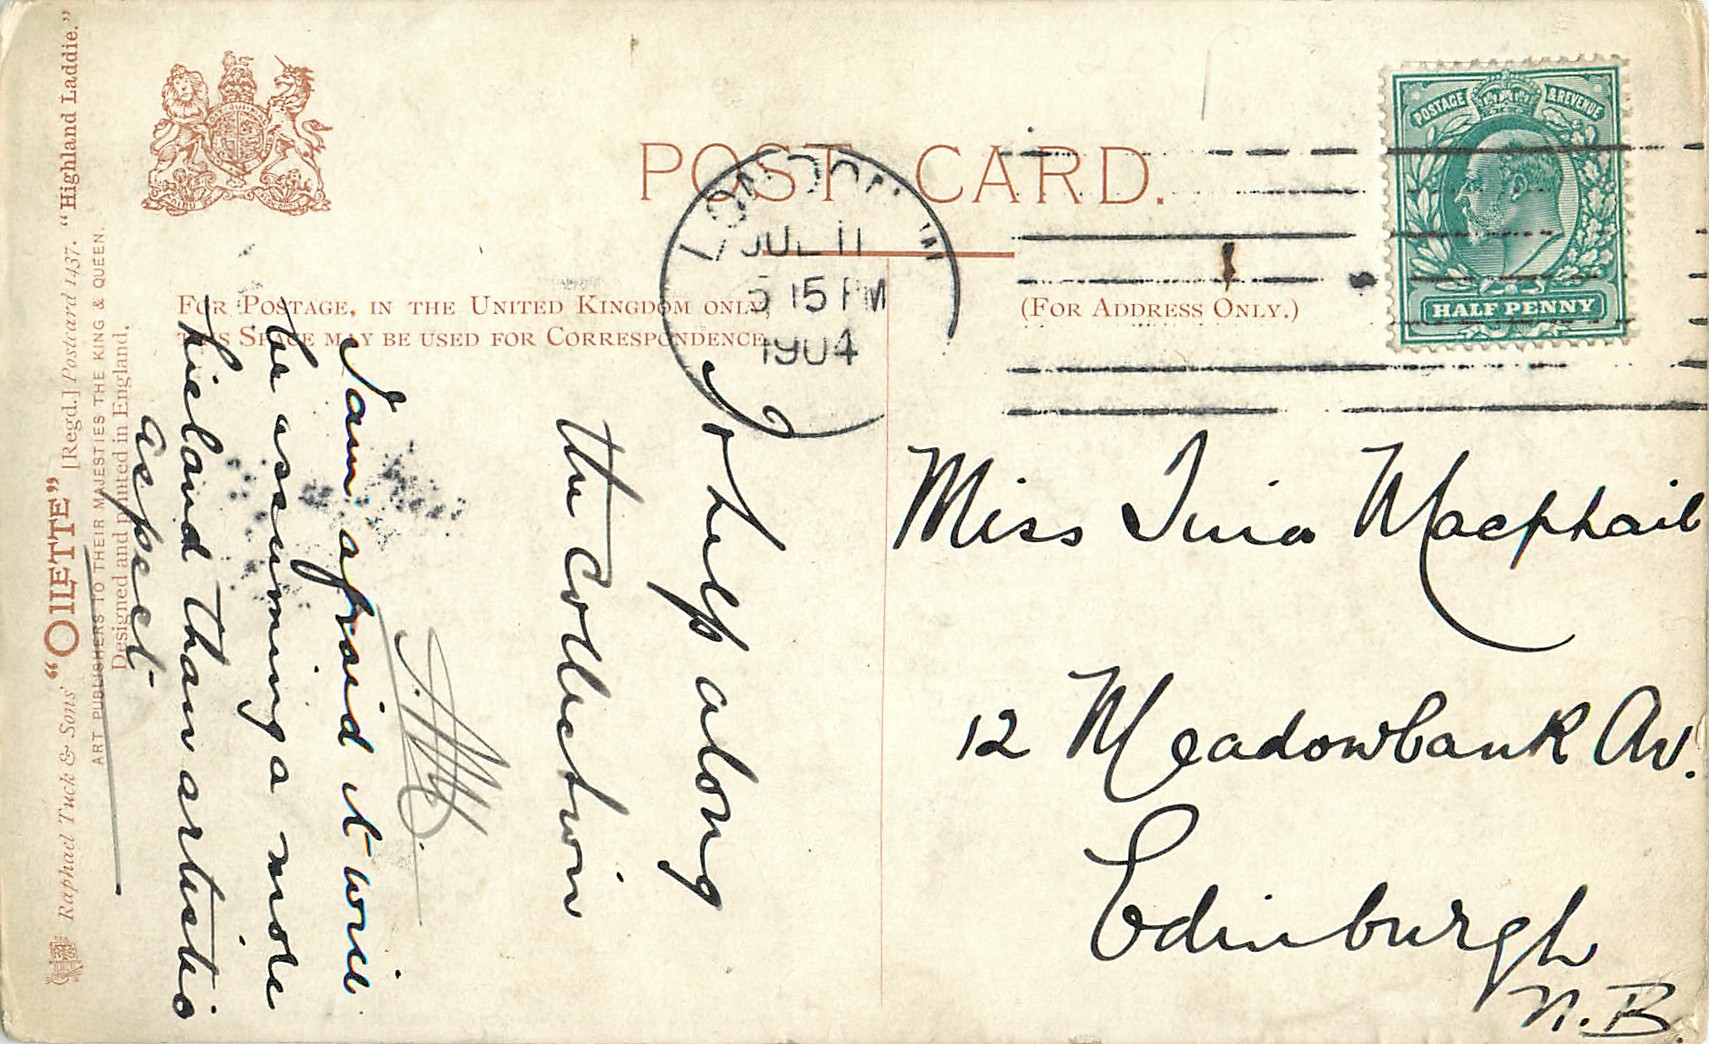 POST CARD.
FOR POSTAGE, IN THE UNITED KINGDOM ONLY,
THIS SPACE MAY BE USED FOR CORRESPONDENCE.
(FOR ADDRESS ONLY.)
LONDON W
JUL 11
5 15 PM
1904
POSTAGE & REVENUE
HALF PENNY
Miss Tina Macphail
12 Meadowbank Av.
Edinburgh
N.B.
To help along
the collection
I am afraid it will
be assuming a more
hieland than artistic
aspect
Raphael Tuck & Sons' "OILETTE" [Regd.] Postcard 1437. "Highland Laddie."
ART PUBLISHERS TO THEIR MAJESTIES THE KING & QUEEN.
Designed and printed in England.